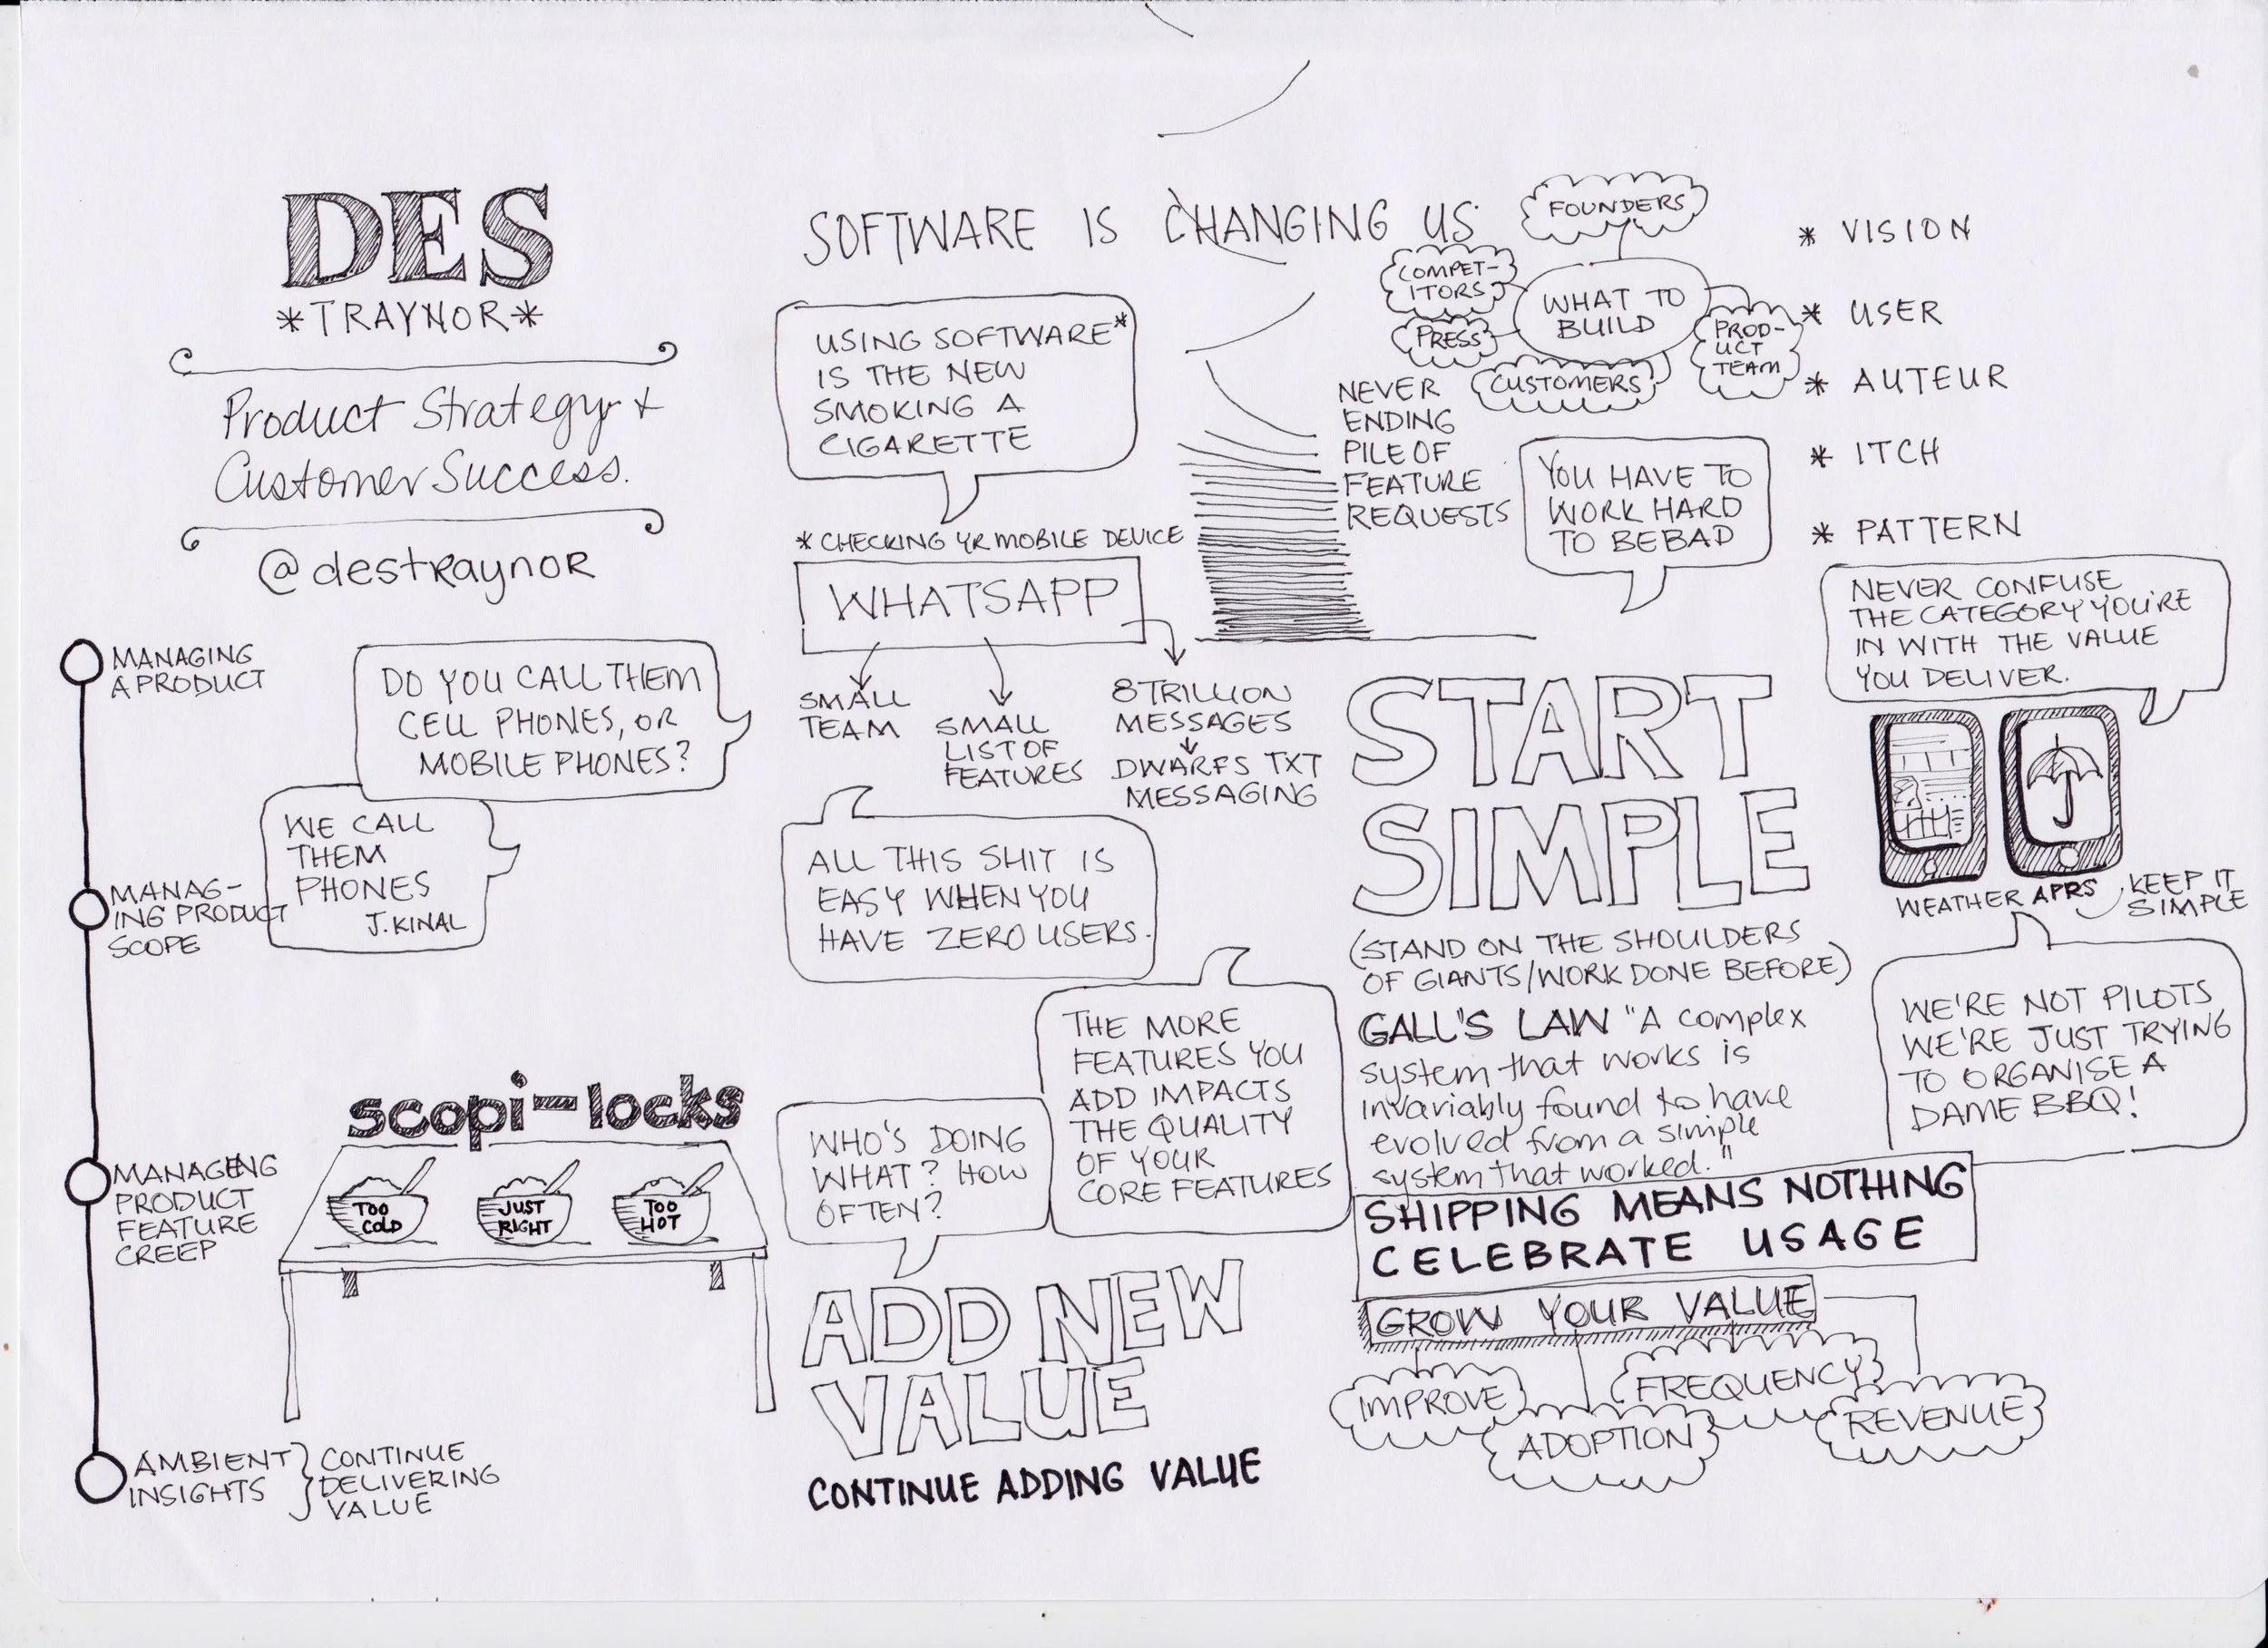 DES
*TRAYNOR*
Product Strategy +
Customer Success.
@destraynor
MANAGING
A PRODUCT
MANAG-
ING PRODUCT
SCOPE
MANAGING
PRODUCT
FEATURE
CREEP
AMBIENT
INSIGHTS
CONTINUE
DELIVERING
VALUE
DO YOU CALL THEM
CELL PHONES, OR
MOBILE PHONES?
WE CALL
THEM
PHONES
J. KINAL
scopi-locks
TOO
COLD
JUST
RIGHT
TOO
HOT
SOFTWARE IS CHANGING US
USING SOFTWARE*
IS THE NEW
SMOKING A
CIGARETTE
* CHECKING YR MOBILE DEVICE
WHATSAPP
SMALL
TEAM
SMALL
LIST OF
FEATURES
8 TRILLION
MESSAGES
DWARFS TXT
MESSAGING
ALL THIS SHIT IS
EASY WHEN YOU
HAVE ZERO USERS.
THE MORE
FEATURES YOU
ADD IMPACTS
THE QUALITY
OF YOUR
CORE FEATURES
WHO'S DOING
WHAT? HOW
OFTEN?
ADD NEW
VALUE
CONTINUE ADDING VALUE
FOUNDERS
COMPET-
ITORS
PRESS
WHAT TO
BUILD
PROD-
UCT
TEAM
CUSTOMERS
NEVER
ENDING
PILE OF
FEATURE
REQUESTS
YOU HAVE TO
WORK HARD
TO BE BAD
* VISION
* USER
* AUTEUR
* ITCH
* PATTERN
NEVER CONFUSE
THE CATEGORY YOU'RE
IN WITH THE VALUE
YOU DELIVER.
WEATHER APPS
KEEP IT
SIMPLE
WE'RE NOT PILOTS
WE'RE JUST TRYING
TO ORGANISE A
DAME BBQ!
START
SIMPLE
(STAND ON THE SHOULDERS
OF GIANTS/WORK DONE BEFORE)
GALL'S LAW "A complex
system that works is
invariably found to have
evolved from a simple
system that worked."
SHIPPING MEANS NOTHING
CELEBRATE USAGE
GROW YOUR VALUE
IMPROVE
ADOPTION
FREQUENCY
REVENUE